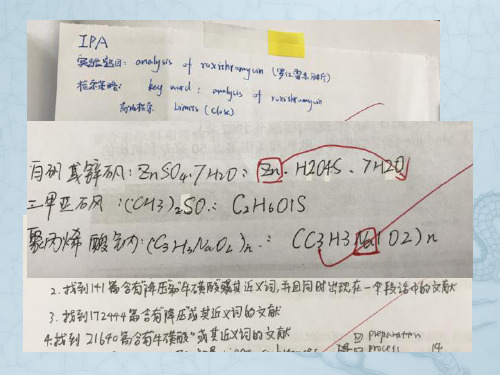 IPA
实验题目: analysis of roxithromycin (罗红霉素)
检索策略: key word: analysis of roxithromycin
高级检索 Limits (Close)
白矾或锌矾: ZnSO4·7H2O: Zn·H2O4S·7H2O
二甲亚砜: (CH3)2SO: C2H6O1S
聚丙烯酸钠: (C3H3NaO2)n: CC3H3Na1O2)n
2.找到141篇含有"降压"和"牛磺酸"或其近义词,并且同时出现在一个段话中的文献
3.找到172444篇含有"降压"或其近义词的文献
4.找到21640篇含有"牛磺酸"或其近义词的文献
preparation
process 14